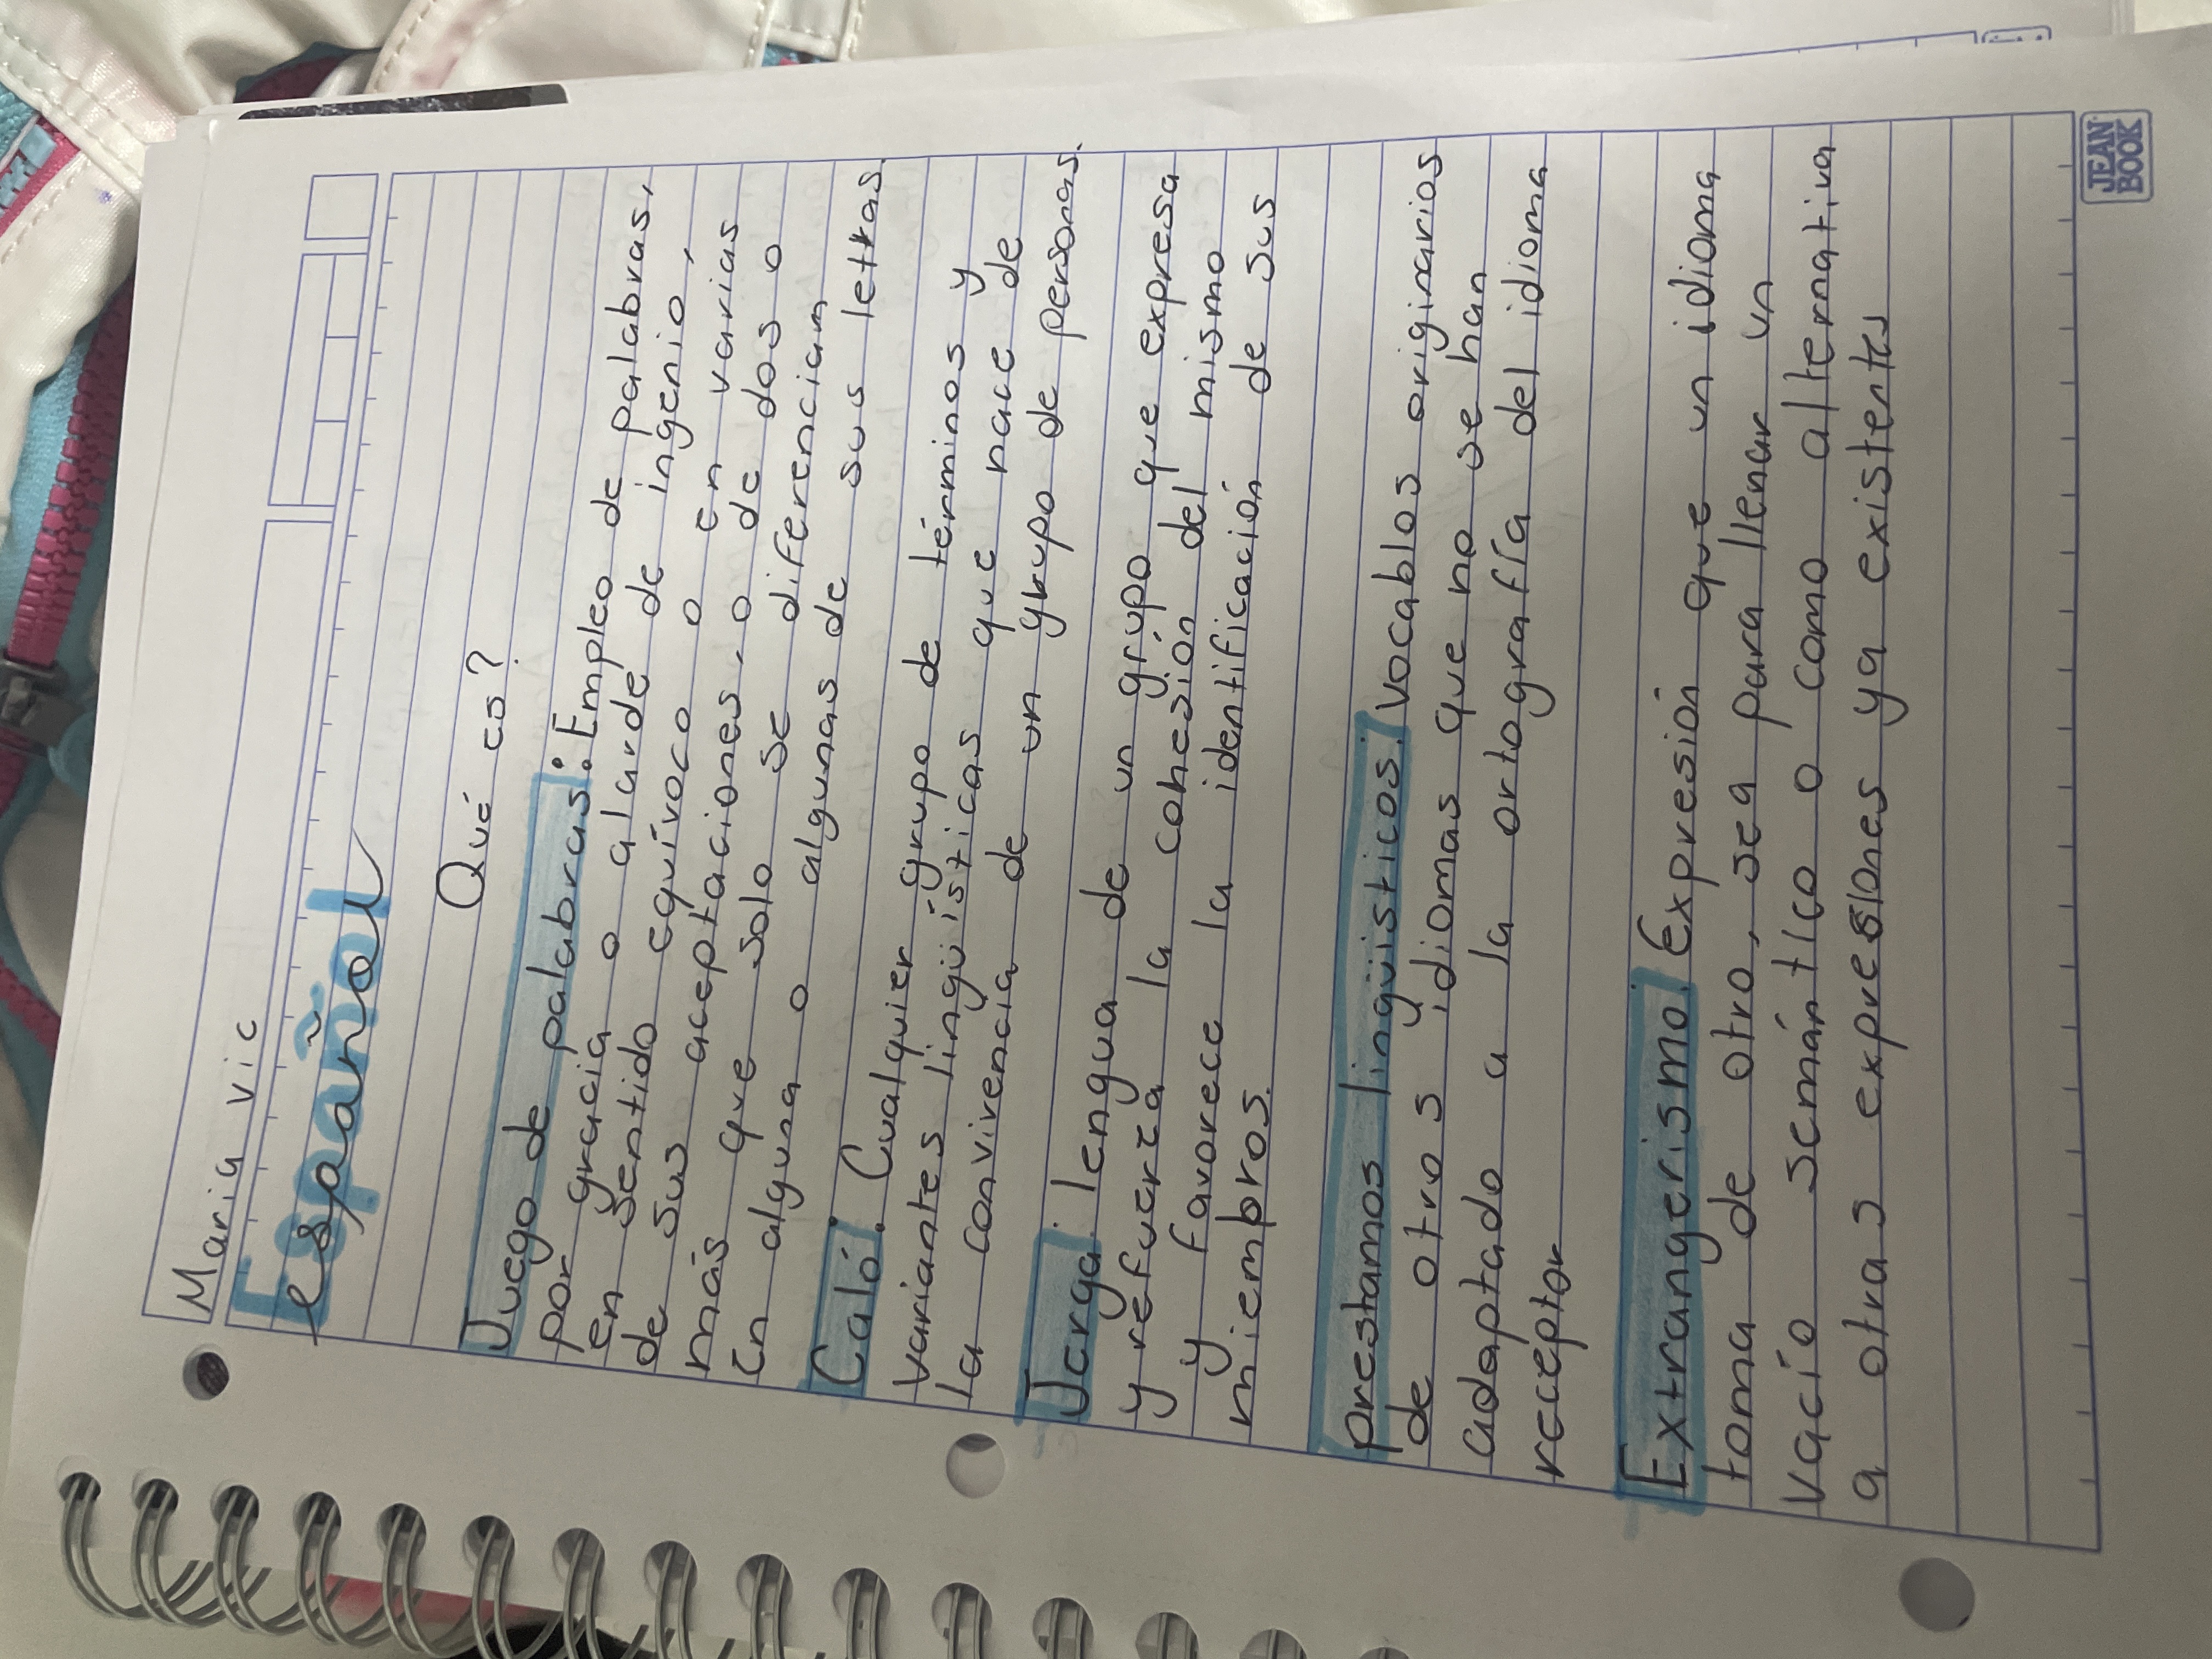 Maria Vic
Español
español
Qué es?
Juego de palabras: Empleo de palabras,
por gracia o alarde de ingenio,
en sentido equívoco o en varias
de sus aceptaciones, o de dos o
más que solo se diferencian
en alguna o algunas de sus letras.
Caló: Cualquier grupo de términos y
variantes lingüísticas que nace de
la convivencia de un grupo de personas.
Jerga: lengua de un grupo que expresa
y refuerza la cohesión del mismo
y favorece la identificación de sus
miembros.
prestamos lingüisticos: Vocablos originarios
de otros idiomas que no se han
adaptado a la ortografía del idioma
receptor
Extrangerismo: Expresión que un idioma
toma de otro, sea para llenar un
vacío semántico o como alternativa
a otras expresiones ya existentes
JEAN
BOOK